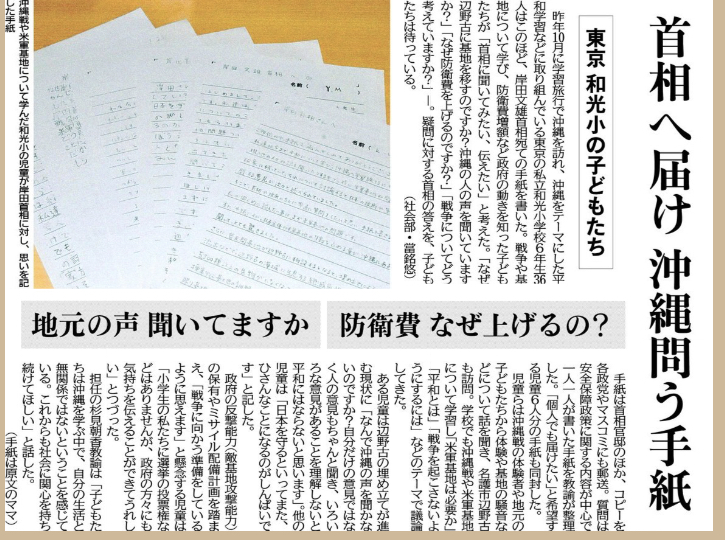 首相へ届け 沖縄問う手紙
東京 和光小の子どもたち
昨年10月に学習旅行で沖縄を訪れ、沖縄をテーマにした平
和学習などに取り組んでいる東京の私立和光小学校６年生36
人はこのほど、岸田文雄首相宛ての手紙を書いた。戦争や基
地について学び、防衛費増額など政府の動きを知った子ども
たちが「首相に聞いてみたい、伝えたい」と考えた。「なぜ
辺野古に基地を移すのですか？沖縄の人の声を聞いています
か？」「なぜ防衛費を上げるのですか？」「戦争についてどう
考えていますか？」―。疑問に対する首相の答えを、子ども
たちは待っている。
（社会部・當銘悠）
沖縄戦や米軍基地について学んだ和光小の児童が岸田首相に対し、思いを記
した手紙
防衛費 なぜ上げるの？
地元の声 聞いてますか
手紙は首相官邸のほか、コピーを
各政党やマスコミにも郵送。質問は
安全保障政策に関する内容が中心で
一人一人が書いた手紙を教諭が整理
した。「個人でも届けたい」と希望す
る児童６人分の手紙も同封した。
児童らは沖縄戦の体験者や地元の
子どもたちから体験や基地の騒音な
どについて話を聞き、名護市辺野古
も訪問。学校でも沖縄戦や米軍基地
について学習し「米軍基地は必要か」
「平和とは」「戦争を起こさないよ
うにするには」などのテーマで議論
してきた。
ある児童は辺野古の埋め立てが進
む現状に「なんで沖縄の声を聞かな
いのですか？自分だけの意見ではな
く人の意見もちゃんと聞き、いろい
ろな意見があることを理解しないと
平和にはならないと思います」。他の
児童は「日本を守るといってまた、
ひさんなことになるのがしんぱいで
す」と記した。
政府の反撃能力（敵基地攻撃能力）
の保有やミサイル配備計画を踏ま
え、「戦争に向かう準備をしている
ように思えます」と懸念する児童は
「小学生の私たちに選挙の投票権な
どはありませんが、政府の方々にも
気持ちを伝えることができてうれし
い」とつづった。
担任の杉見朝香教諭は「子どもた
ちは沖縄を学ぶ中で、自分の生活と
無関係ではないということを感じて
いる。これからも社会に関心を持ち
続けてほしい」と話した。
（手紙は原文のママ）